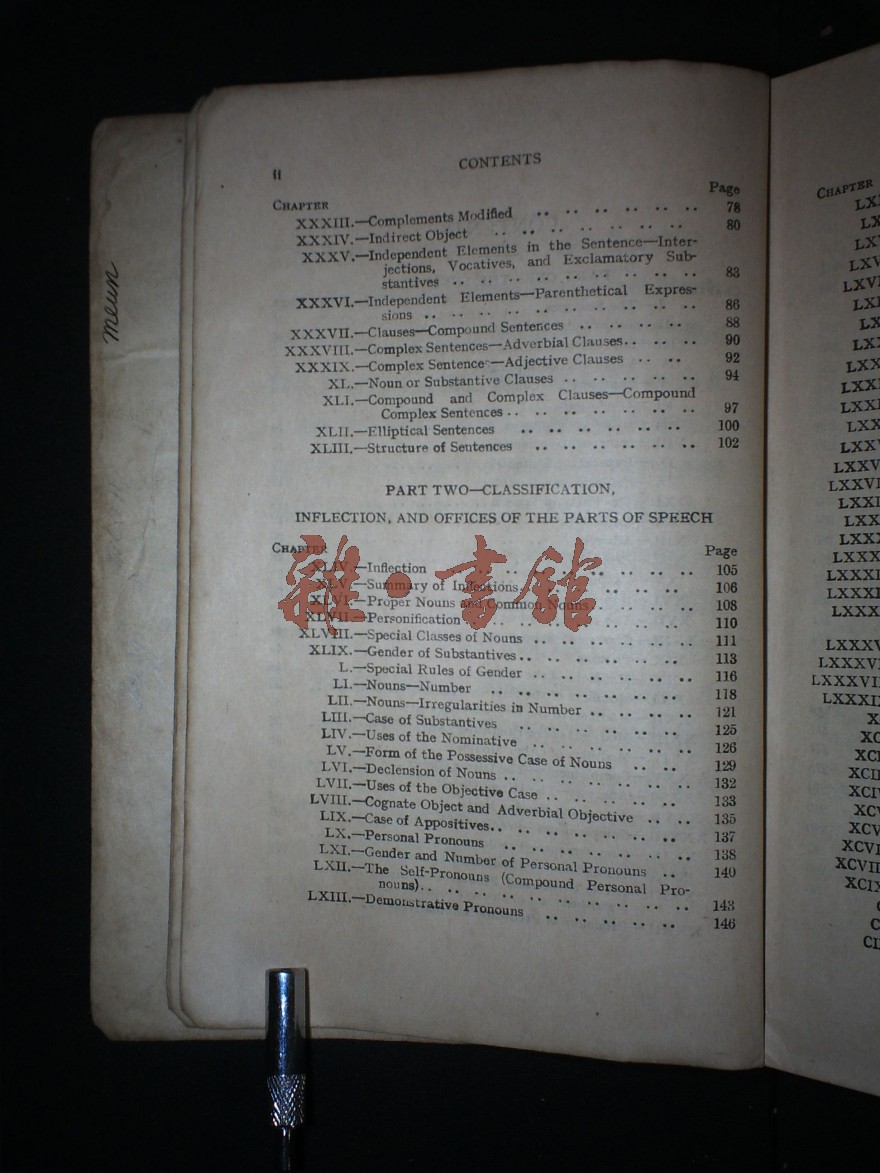 meun
ii
CONTENTS
CHAPTER Page
XXXIII.—Complements Modified .. .. .. .. .. .. 78
XXXIV.—Indirect Object .. .. .. .. .. .. .. 80
XXXV.—Independent Elements in the Sentence—Inter-
jections, Vocatives, and Exclamatory Sub-
stantives .. .. .. .. .. .. .. .. .. 83
XXXVI.—Independent Elements—Parenthetical Expres-
sions .. .. .. .. .. .. .. .. .. .. 86
XXXVII.—Clauses—Compound Sentences .. .. .. .. .. 88
XXXVIII.—Complex Sentences—Adverbial Clauses.. .. .. .. 90
XXXIX.—Complex Sentences—Adjective Clauses .. .. 92
XL.—Noun or Substantive Clauses .. .. .. .. .. 94
XLI.—Compound and Complex Clauses—Compound
Complex Sentences .. .. .. .. .. .. .. .. 97
XLII.—Elliptical Sentences .. .. .. .. .. .. 100
XLIII.—Structure of Sentences .. .. .. .. .. .. 102
PART TWO—CLASSIFICATION,
INFLECTION, AND OFFICES OF THE PARTS OF SPEECH
CHAPTER Page
XLIV.—Inflection .. .. .. .. .. .. .. .. .. 105
XLV.—Summary of Inflections.. .. .. .. .. .. .. 106
XLVI.—Proper Nouns and Common Nouns .. .. .. .. 108
XLVII.—Personification .. .. .. .. .. .. .. .. 110
XLVIII.—Special Classes of Nouns .. .. .. .. .. .. 111
XLIX.—Gender of Substantives .. .. .. .. .. .. .. 113
L.—Special Rules of Gender .. .. .. .. .. .. 116
LI.—Nouns—Number .. .. .. .. .. .. .. .. 118
LII.—Nouns—Irregularities in Number .. .. .. .. 121
LIII.—Case of Substantives .. .. .. .. .. .. .. 125
LIV.—Uses of the Nominative .. .. .. .. .. .. 126
LV.—Form of the Possessive Case of Nouns .. .. 129
LVI.—Declension of Nouns .. .. .. .. .. .. .. 132
LVII.—Uses of the Objective Case .. .. .. .. .. 133
LVIII.—Cognate Object and Adverbial Objective .. .. 135
LIX.—Case of Appositives.. .. .. .. .. .. .. .. 137
LX.—Personal Pronouns .. .. .. .. .. .. .. 138
LXI.—Gender and Number of Personal Pronouns .. 140
LXII.—The Self-Pronouns (Compound Personal Pro-
nouns).. .. .. .. .. .. .. .. .. .. .. 143
LXIII.—Demonstrative Pronouns .. .. .. .. .. 146
雜·書館
CHAPTER